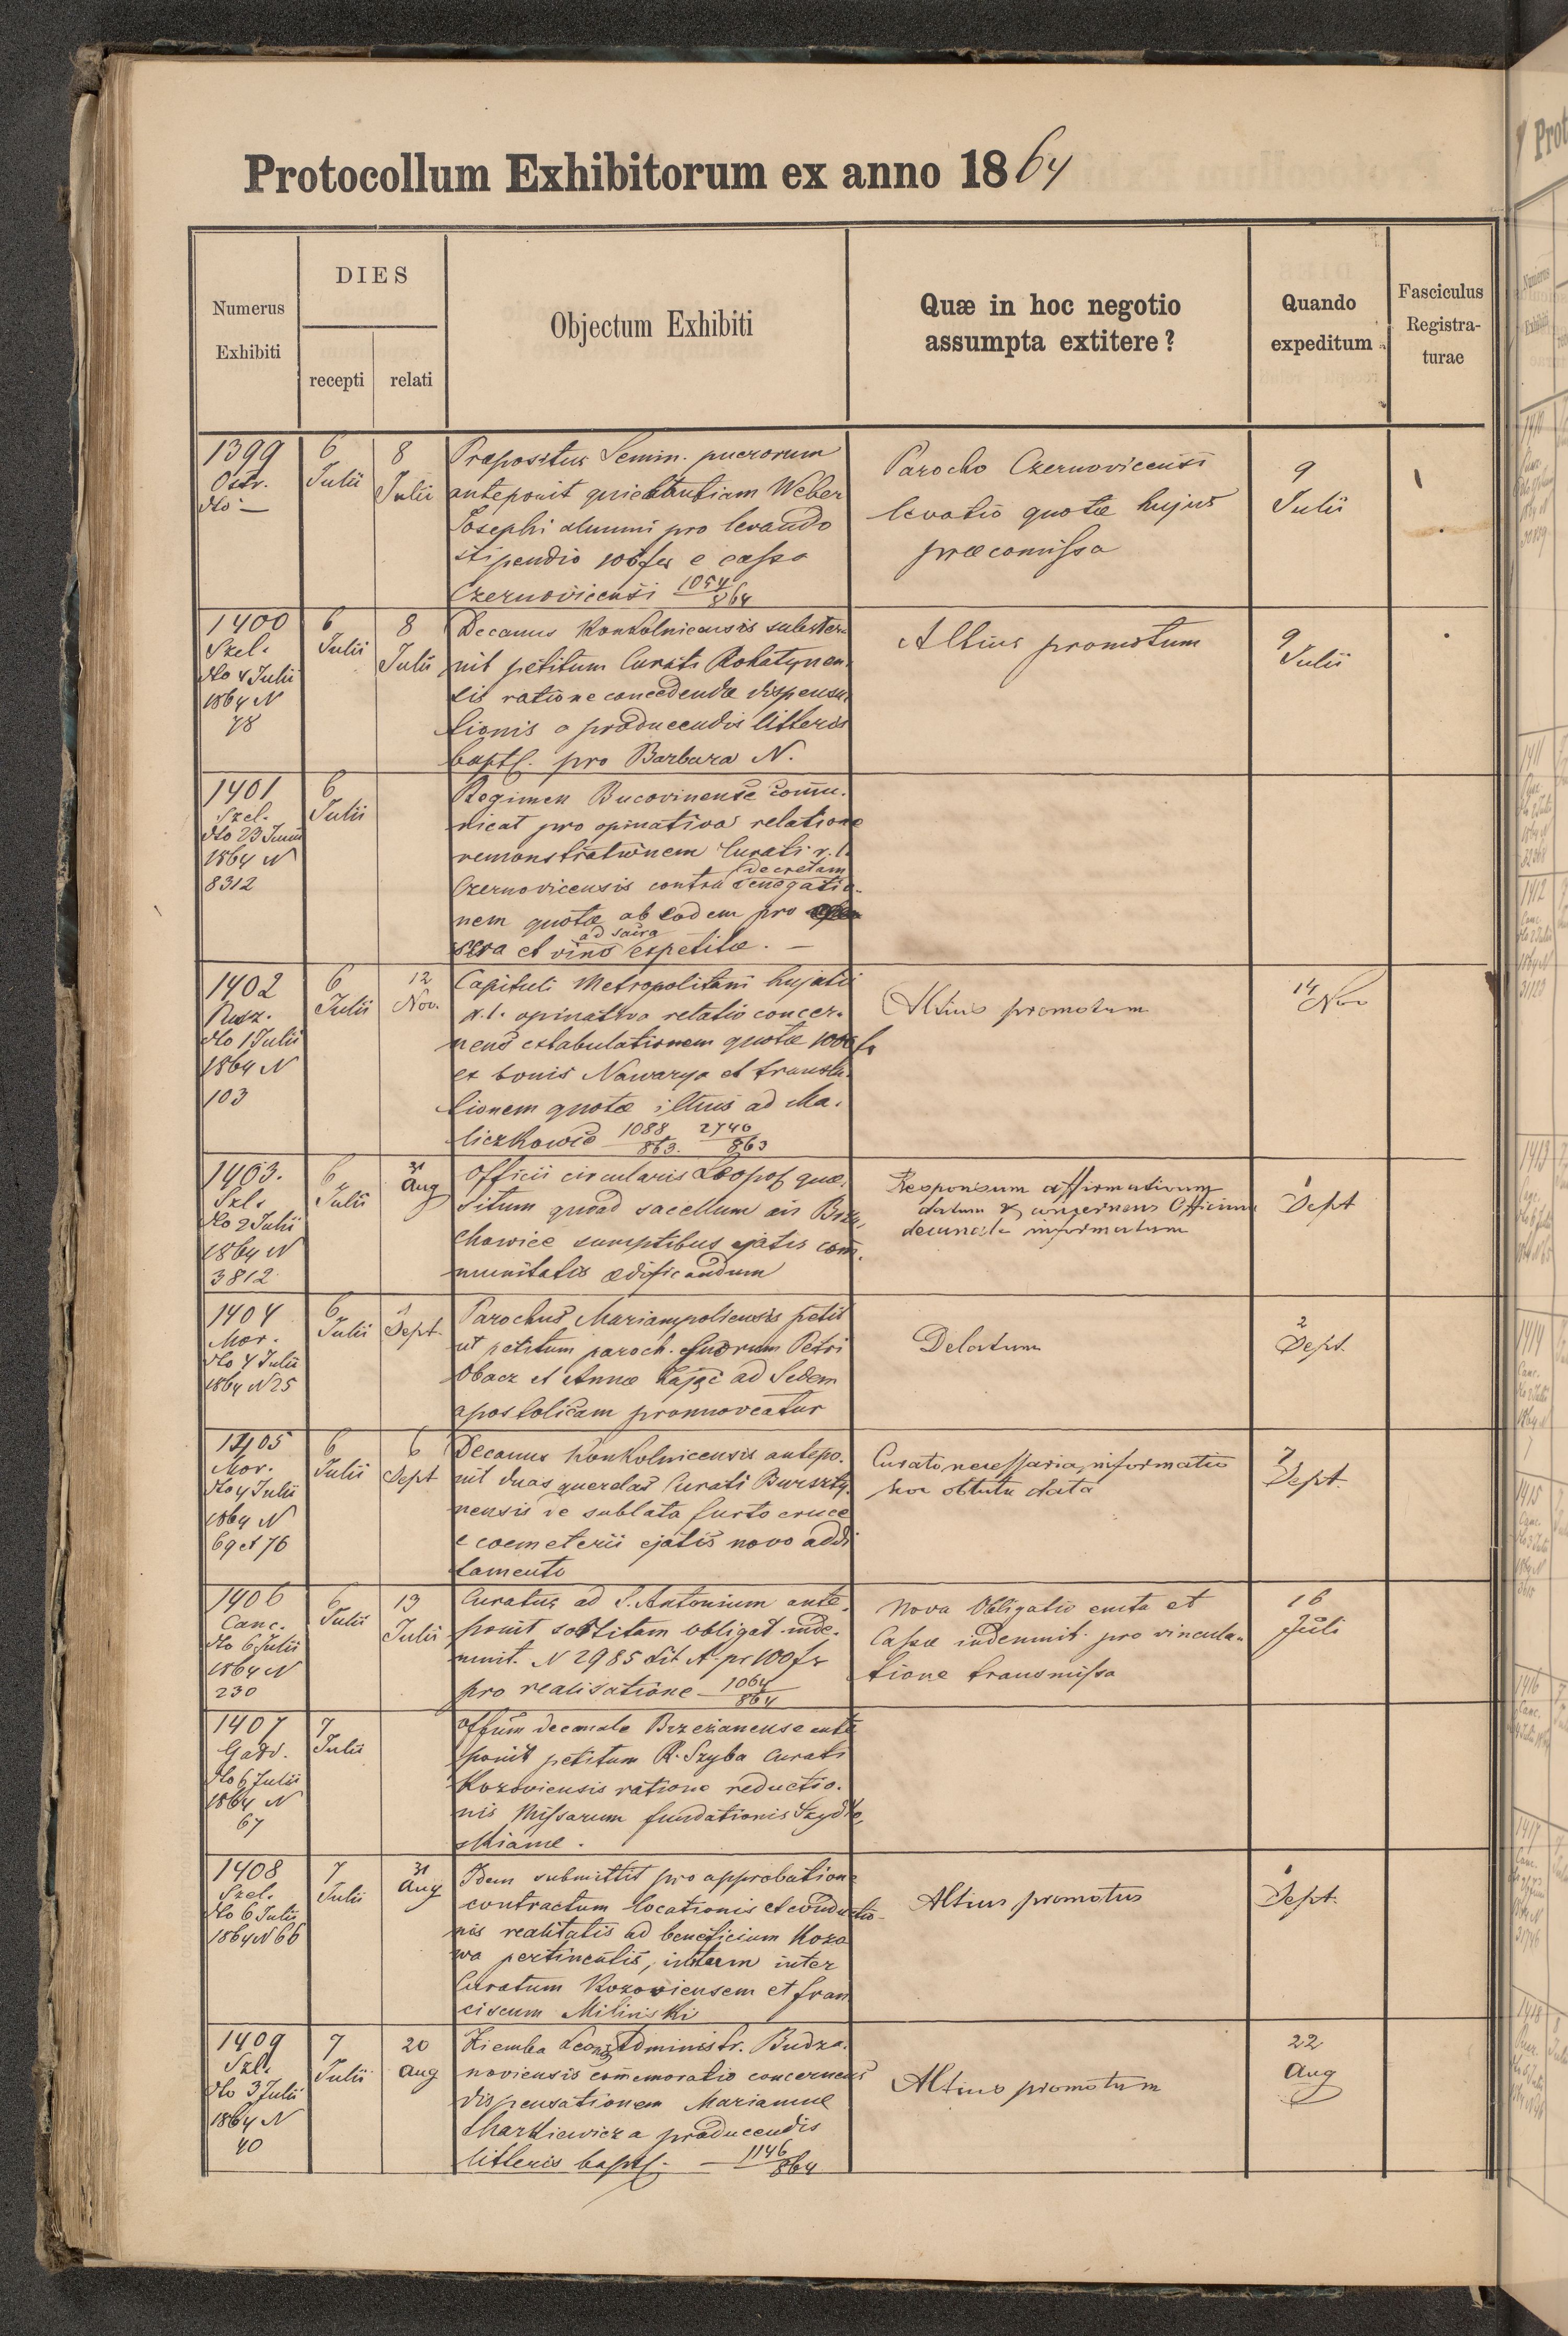 Protocollum Exhibitorum ex anno 1864
Numerus
Exhibiti
DIES
recepti
relati
Objectum Exhibiti
Quæ in hoc negotio
assumpta extitere?
Quando
expeditum
Fasciculus
Registra-
turae
1399
Ostr.
dto —
6
Julii
8
Julii
Præpositus Semin. puerorum
anteponit quietantiam Weber
Josephi alumni pro levando
stipendio 106 fer e cassa
Czernovicensi 1054/864
Parocho Czernovicensi
levatio quotæ hujus
præcomissa
9
Julii
1400
Szel.
dto 4 Julii
1864 N
78
6
Julii
8
Julii
Decanus Konkolnicensis subster-
nit petitum Curati Rohatynen-
sis ratione concedendæ dispensa-
tionis a producendis litteris
baptis. pro Barbara N.
Altius promotum
9
Julii
1401
Szel.
dto 23 Junii
1864 N
8312
6
Julii
Regimen Bucovinense commu-
nicat pro opinativa relatione
remonstrationem Curati r. l.
Czernovicensis contra decretam denegatio-
nem quotæ ab eodem pro
cera et vino ad sacra expetitæ. —
1402
Rusz.
dto 1 Julii
1864 N
103
6
Julii
12
Nov.
Capituli Metropolitani hujatis
r. l. opinativa relatio concer-
nens extabulationem quotæ 1000 fr
ex bonis Nawarya et transla-
tionem quotæ illius ad Ma-
liczkowice 1088/863. 2740/863
Altius promotum
14
Nov
1403.
Szl.
dto 2 Julii
1864 N
3812
6
Julii
31
Aug
Officii circularis Leopol quæ-
situm quoad sacellum in Brzu-
chowice sumptibus ejatis com-
munitatis ædificandum
Responsum affirmativum
datum & concernens Officium
decanale informatum
1
Sept
1404
Mor.
dto 4 Julii
1864 N 25
6
Julii
1
Sept.
Parochus Mariampoliensis petit
ut petitum paroch. suorum Petri
Obacz et Annæ Zając ad Sedem
apostolicam promnoveatur
Delatum
2
Sept.
1405
Mor.
dto 4 Julii
1864 N
69 et 76
6
Julii
6
Sept
Decanus Konkolnicensis antepo-
nit duas querelas Curati Burszty-
nensis de sublata furto cruce
e coemeterii ejatis novo addi
tamento
Curato necessaria informatio
hoc obtutu data
7
Sept.
1406
Canc.
dto 6 Julii
1864 N
230
6
Julii
13
Julii
Curatus ad S. Antonium ante-
ponit sortitam obligat. inde-
mnit. N 2985 Lit A pr 100 fr
pro realisatione — 1064/864
Nova Obligatio emta et
Cassæ indemnit. pro vincula-
tione transmissa
16
Juli
1407
Gatd.
dto 6 Julii
1864 N
67
7
Julii
Offium decanale Brzezanense ante
ponit petitum R. Szyba Curati
Kozoviensis ratione reductio-
nis Missarum fundationis Szydło
skianæ.
1408
Szel.
dto 6 Julii
1864 N 66
7
Julii
31
Aug
Idem submittit pro approbatione
contractum locationis et conductio-
nis realitatis ad beneficium Kozo
wa pertinentis, initum inter
Curatum Kozoviensem et Fran
ciscum Miliński
Altius promotus
1
Sept.
1409
Szl.
dto 3 Julii
1864 N
40
7
Julii
20
Aug
Ziemba Leon Administr. Budza-
noviensis commemoratio concernens
dispensationem Mariannæ
Charkiewicz a producendis
litteris baptis. — 1146/864
Altius promotum
22
Aug